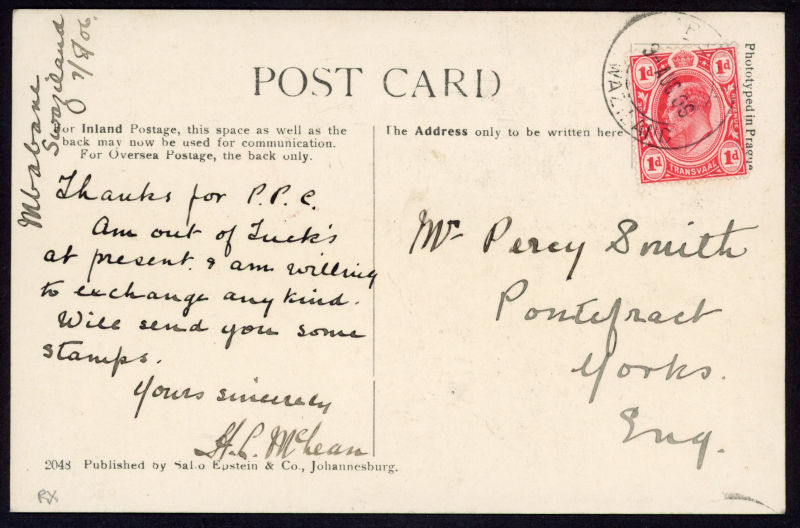 Mbabane
Swaziland
7/8/06
POST CARD
For Inland Postage, this space as well as the
back may now be used for communication.
For Oversea Postage, the back only.
The Address only to be written here
Phototyped in Prague
1d 1d
1d 1d
TRANSVAAL
AUG 06
Thanks for P.P.C.
Am out of Tuck's
at present. & am willing
to exchange any kind.
Will send you some
stamps.
Yours sincerely
H.L. McLean
Mr Percy Smith
Pontefract
Yorks.
Eng.
2048 Published by Sallo Epstein & Co., Johannesburg.
RX